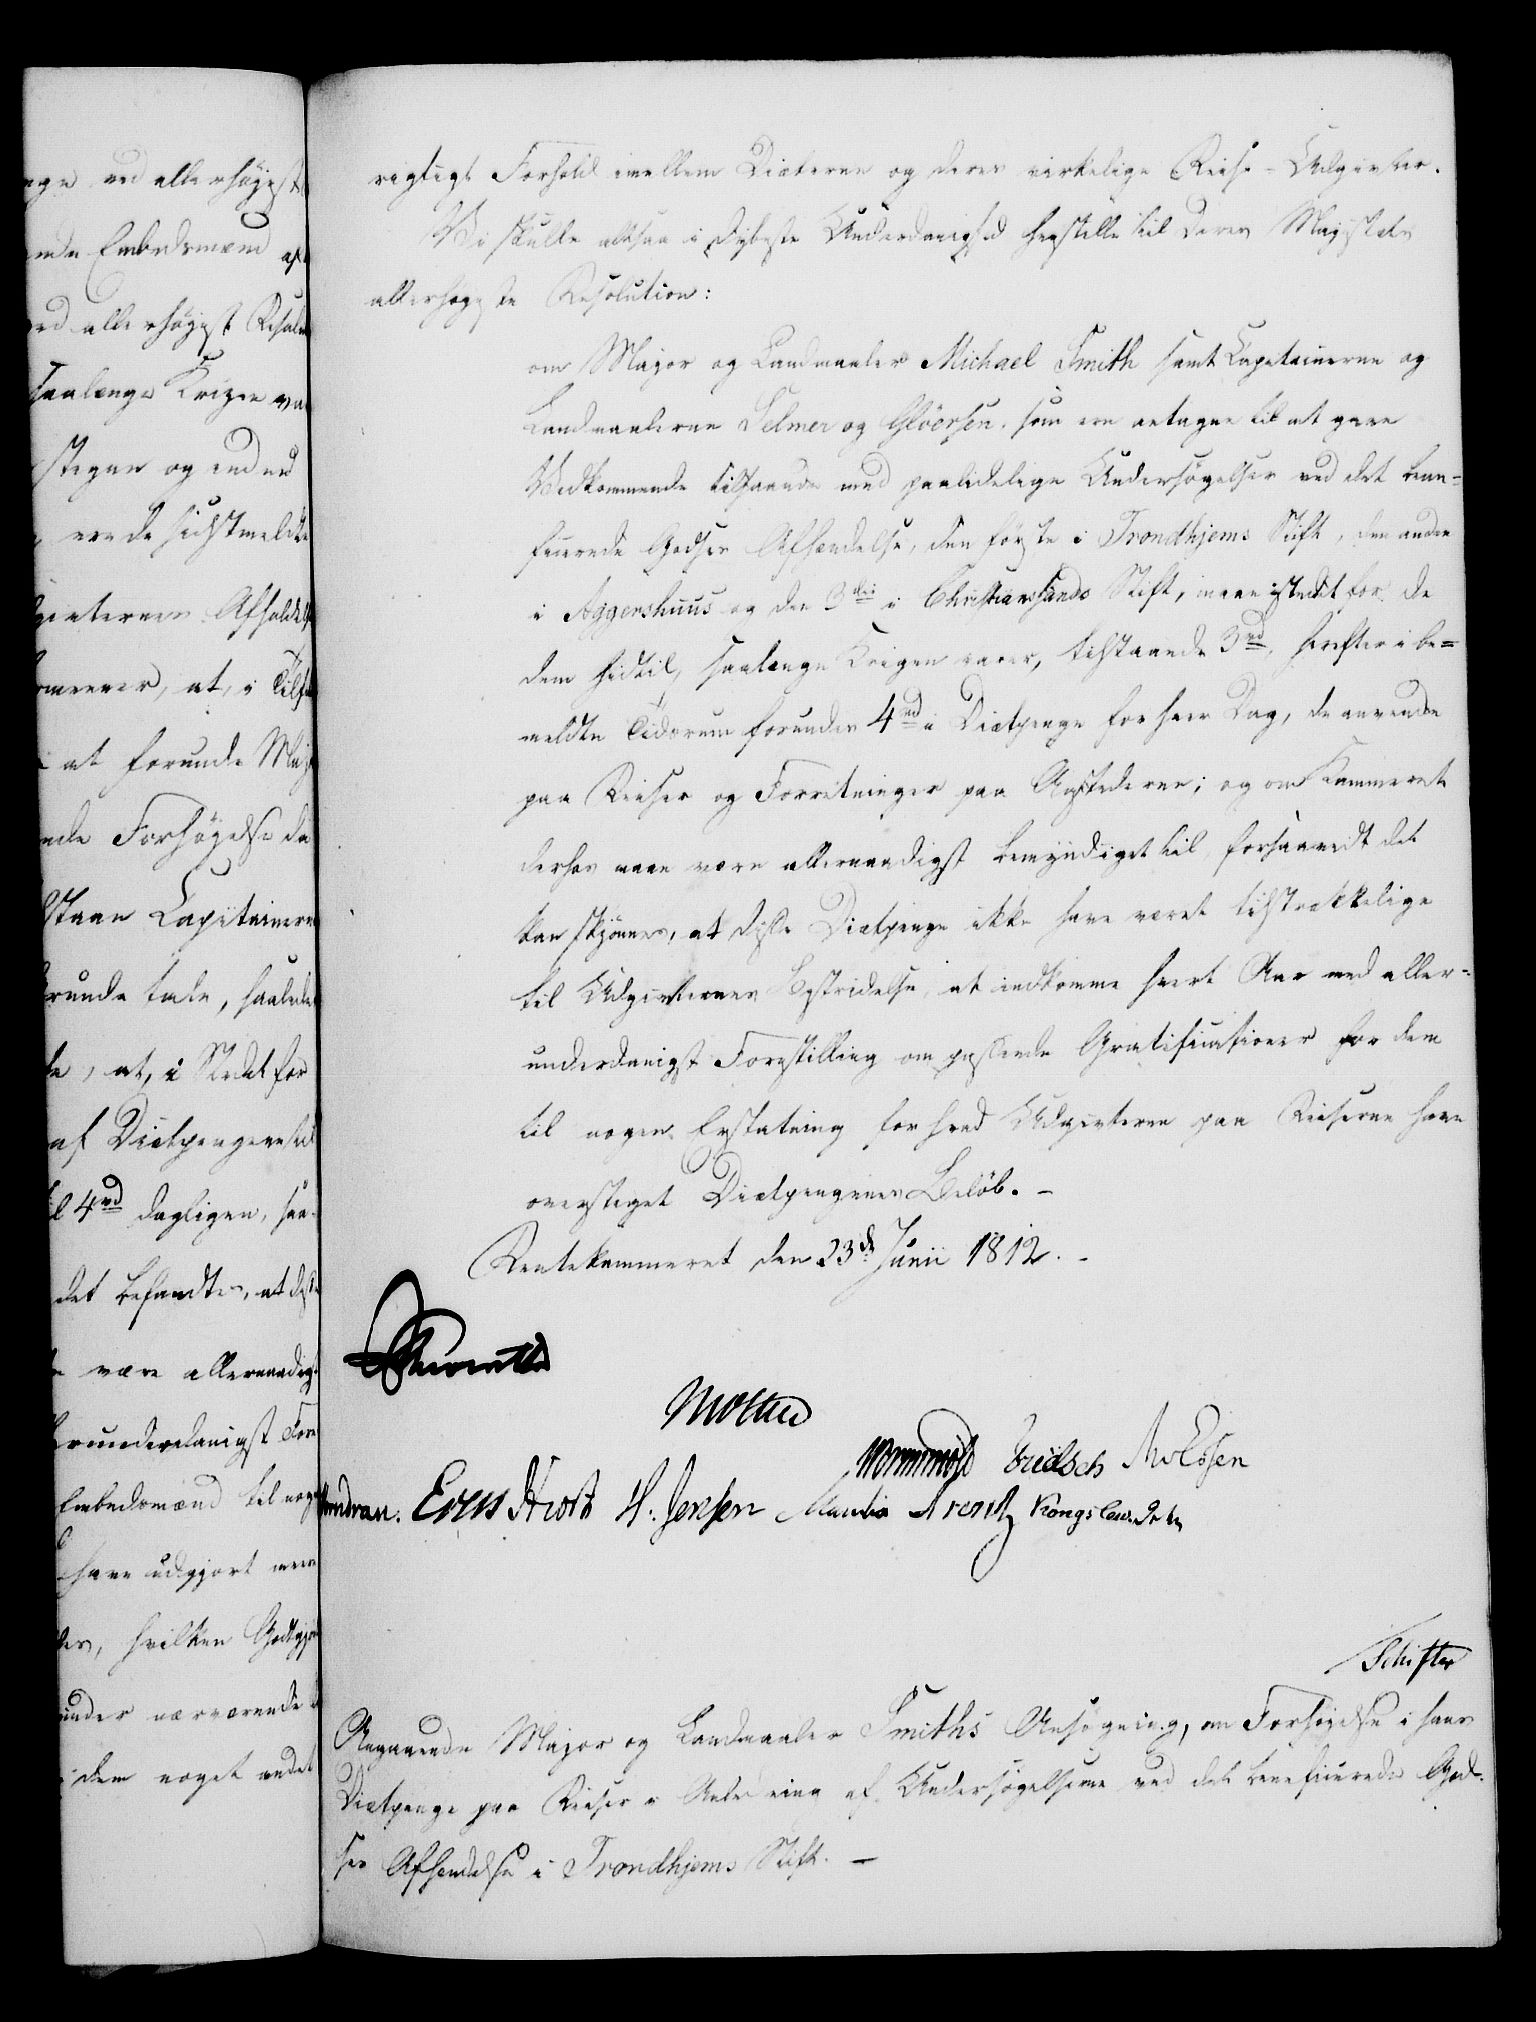 nge ved allerhøjest
ende Embedsmænd af
ved allerhøjest Resolu
saalænge Krigen va
stegen og endnu
ere de sidstmeldte
gieternes Afholdels
omerer, at, i Tilfæ
at forunde Maj
ende Forhøjelse da
staae Capitainern
grunde tale, saalede
de, at, i Stedet for
af Diætpengene til
til 4rd dagligen, saa-
det befandtes, at disse
de være allernaadig-
lerunderdanigst Fore
Embedsmænd til nog
have udgjort mere
des, hvilken Godtgjør
under nærværende
dem noget andet
rigtigt Forhold imellem Diæterne og deres virkelige Reise-Udgivter.
Vi skulle altsaa i dybeste Underdanighed henstille til Deres Majestæts
allerhøyeste Resolution:
om Major og Landmaaler Michael Smith samt Capitainerne og
Landmaalerne Selmer og Gløersen, som ere antagne til at gaae
Vedkommende tilhaande med paalidelige Undersøgelser ved det bene-
ficerede Godses Afhændelse, den første i Trondhjems Stift, den anden
i Aggershuus og den 3die i Christiansands Stift, maae istedet for de
dem hidtil, saalænge Krigen varer, tilstaaede 3rd, herefter i be-
meldte Tidsrum forundes 4rd i Diætpenge for hver Dag, de anvende
paa Reiser og Forretninger paa Aastederne; og om Kammeret
derhos maae være allernaadigst bemyndiget til, forsaavidt det
kan skjønnes, at disse Diætpenge ikke have været tilstrækkelige
til Udgivternes Bestridelse, at indkomme hvert Aar med aller-
underdanigst Forestilling om passende Gratificationer for dem
til nogen Erstatning for hvad Udgivterne paa Reiserne have
oversteget Diætpengenes Beløb. -
Rentekammeret den 23de Junii 1812. -
Moltke
Wormskiold
Evers Hvist H. Jensen Arentz
Schifter
Angaaende Major og Landmaaler Smiths Ansøgning, om Forhøjelse i hans
Diætpenge paa Reiser i Anledning af Undersøgelserne ved det beneficerede God-
ses Afhændelse i Trondhjems Stift. -